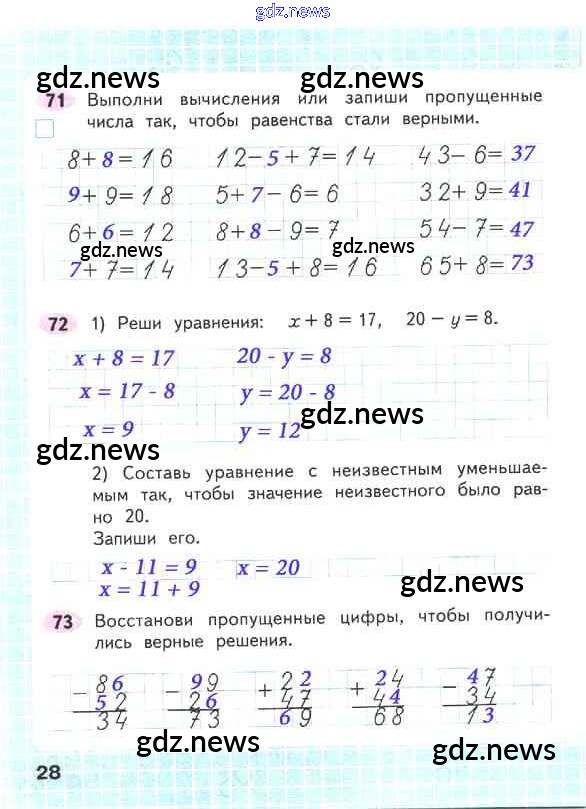 gdz.news
gdz.news gdz.news
71 Выполни вычисления или запиши пропущенные
числа так, чтобы равенства стали верными.
8+8=16 12-5+7=14 43-6=37
9+9=18 5+7-6=6 32+9=41
6+6=12 8+8-9=7 54-7=47
gdz.news gdz.news
7+7=14 13-5+8=16 65+8=73
72 1) Реши уравнения: x+8=17, 20-y=8.
x + 8 = 17 20 - y = 8
x = 17 - 8 y = 20 - 8
gdz.news
x = 9 y = 12
gdz.news
2) Составь уравнение с неизвестным уменьшае-
мым так, чтобы значение неизвестного было рав-
но 20.
Запиши его.
x - 11 = 9 x = 20
x = 11 + 9
gdz.news
73 Восстанови пропущенные цифры, чтобы получи-
лись верные решения.
- 86 - 99 + 22 + 24 - 47
52 26 47 44 34
34 73 69 68 13
gdz.news gdz.news
28